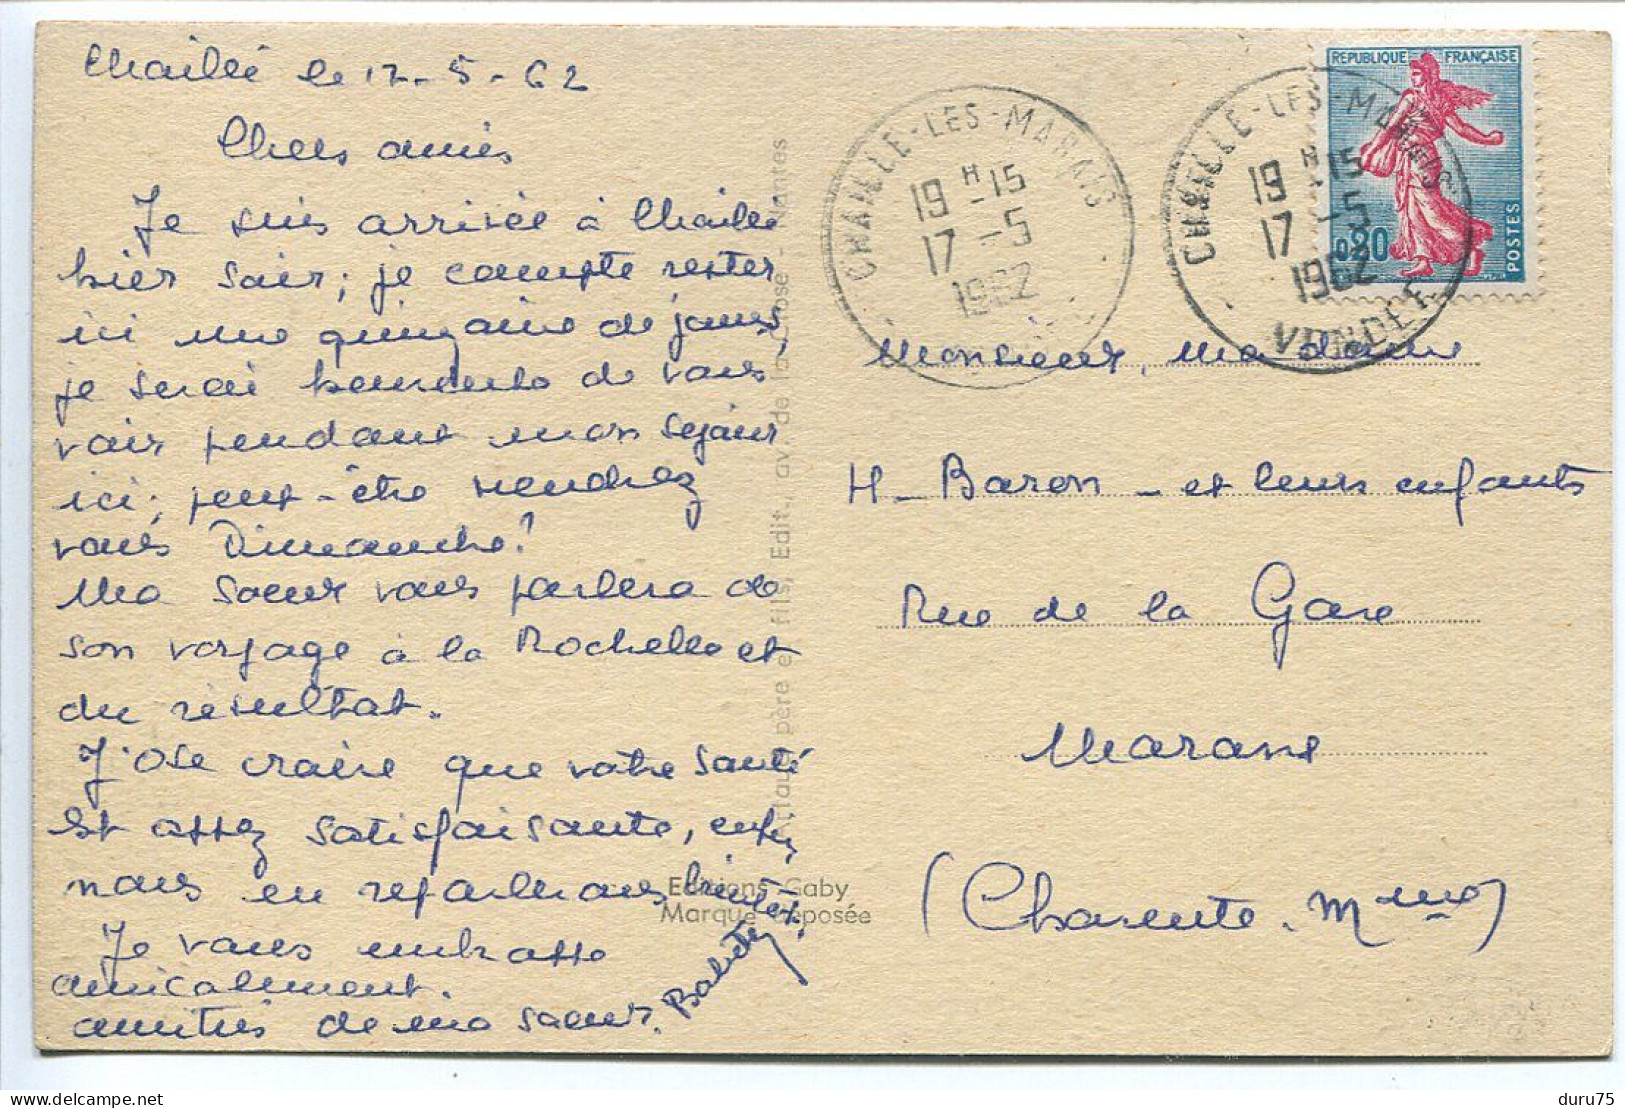 Chaillé le 17-5-62
Chers amis
Je suis arrivée à Chaillé
hier soir; je compte rester
ici une quinzaine de jours,
je serai heureuse de vous
voir pendant mon séjour
ici; peut-être viendrez
vous Dimanche?
Ma soeur vous parlera de
son voyage à la Rochelle et
du résultat.
J'ose croire que votre santé
est assez satisfaisante, enfin,
nous en reparlerons bientôt.
Je vous embrasse
amicalement.
amitiés de ma soeur.
CHAILLE-LES-MARAIS
19 H 15
17 -5
1962
CHAILLE-LES-MARAIS
19 H 15
17 -5
1962
VENDEE
REPUBLIQUE FRANÇAISE
0,20
POSTES
Monsieur, Madame
H- Baron - et leurs enfants
Rue de la Gare
Marans
(Charente-Mme)
père et fils, Edit., av. de la Close - Nantes
Editions Gaby
Marque déposée
duru75